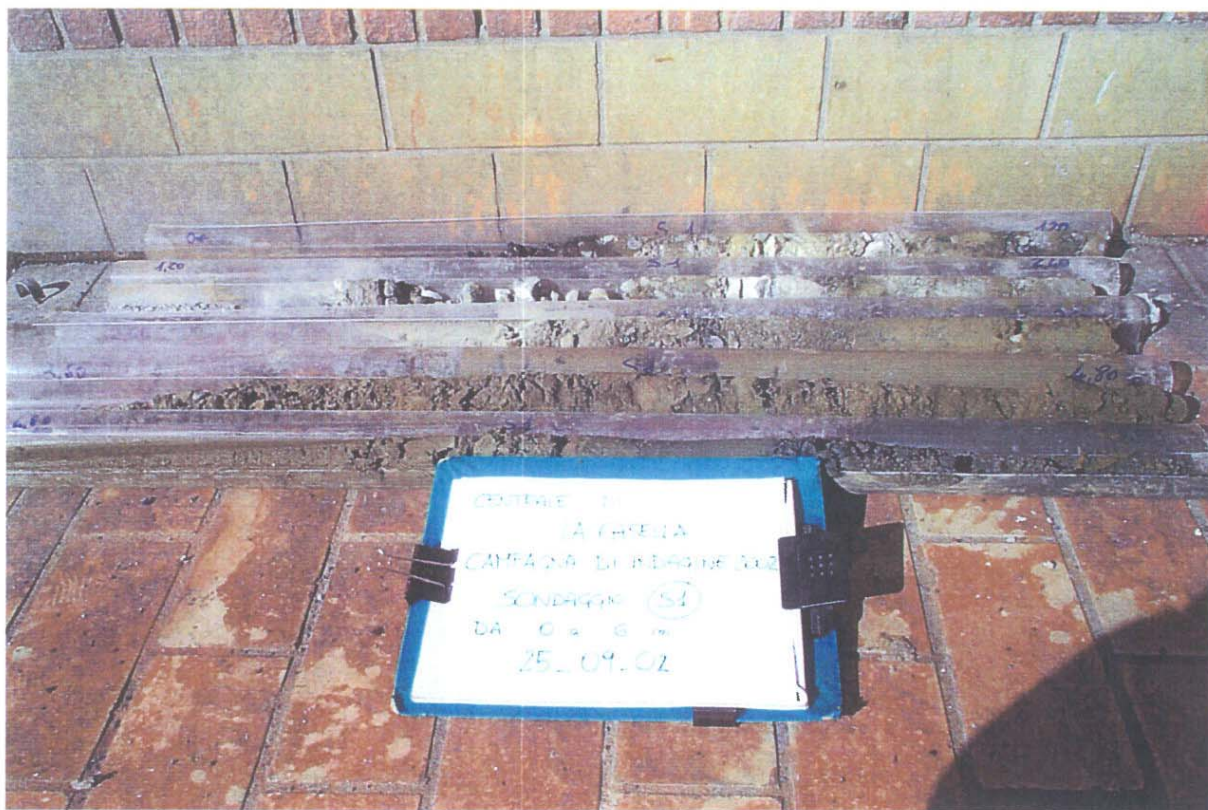 S1 120
1,20 S1 2,40
S1
3,60 S1 4,80
4,80 S1
CENTRALE DI
LA CASELLA
CAMPAGNA DI INDAGINE 2002
SONDAGGIO S1
DA 0 a 6 m
25_09_02